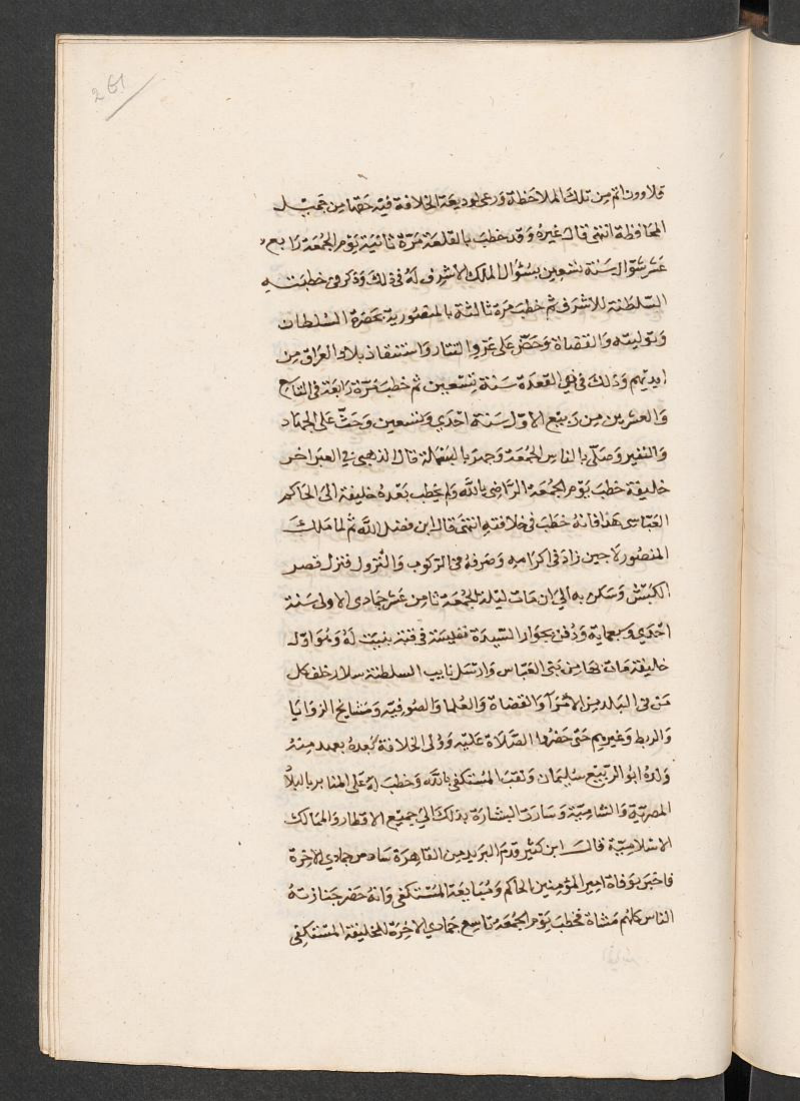 261
قلاوون اتم من تلك الملاحظة ورعى لوديعة الخلافة فيه حقها من جميل
المحافظة انتهى قال غيره وقد خطب بالقلعة مرة ثانية يوم الجمعة رابع
عشر شوال سنة تسعين بسؤال الملك الاشرف له في ذلك وذكر في خطبته
السلطنة للاشرف ثم خطب مرة ثالثة بالمنصورية بحضرة السلطان
وتوليته والقضاة وحض على غزو التتار واستنقاذ بلاد العراق من
ايديهم وذلك في ذي القعدة سنة تسعين ثم خطب مرة رابعة في التاسع
والعشرين من ربيع الاول سنة احدي وتسعين وحث على الجهاد
والنفير وصلى بالناس الجمعة وجهر بالبسملة قال الذهبي في العبر اخر
خليفة خطب يوم الجمعة الراضي بالله ولم يخطب بعده خليفة الى الحاكم
العباسي هذا فانه خطب في خلافته انتهى قال ابن فضل الله ثم لما ملك
المنصور لاجين زاد في اكرامه وصرفه في الركوب والنزول فنزل قصر
الكبش وسكن به الي ان مات ليلة الجمعة ثامن عشر جمادى الاولى سنة
احدي وسبعماية ودفن بجوار السيدة نفيسة في قبة بنيت له وهو اول
خليفة مات بها من بنى العباس وارسل نايب السلطنة سلار خلف كل
من في البلد من الامرا والقضاة والعلما والصوفيه ومشايخ الزوايا
والربط وغيرهم حتى حضروا الصلاة عليه وولى الخلافة بعده بعهد منه
ولده ابو الربيع سليمان ولقب المستكفي بالله وخطب له على المنابر بالبلاد
المصرية والشامية وسارت البشارة بذلك الي جميع الاقطار والممالك
الاسلامية قال ابن كثير وقدم البريد من القاهرة سادس جمادي الاخرة
فاخبر بوفاة امير المؤمنين الحاكم ومبايعة المستكفي وانه حضر جنازته
الناس كلهم مشاة فخطب يوم الجمعة تاسع جمادي الاخرة للخليفة المستكفي